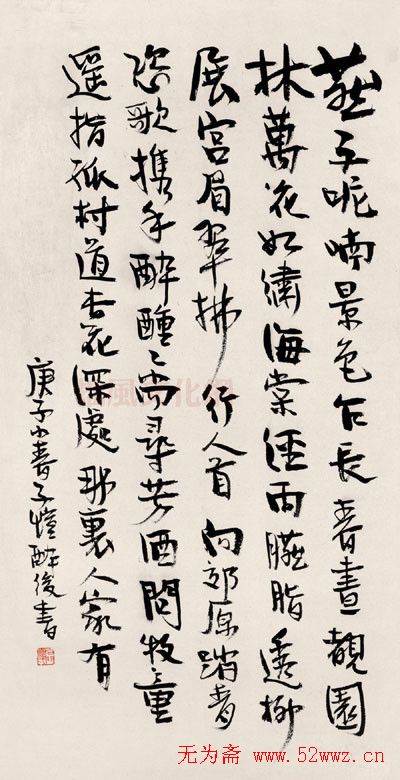 燕子呢喃景色乍長春晝靚園
林萬花如繡海棠經雨臙脂透柳
展宮眉翠拂行人首向郊原踏青
恣歌携手醉醺〻尚尋芳酒問牧童
遥指孤村道杏花深處那裏人家有
庚子小春子愷醉後書
无为斋 www.52wwz.cn